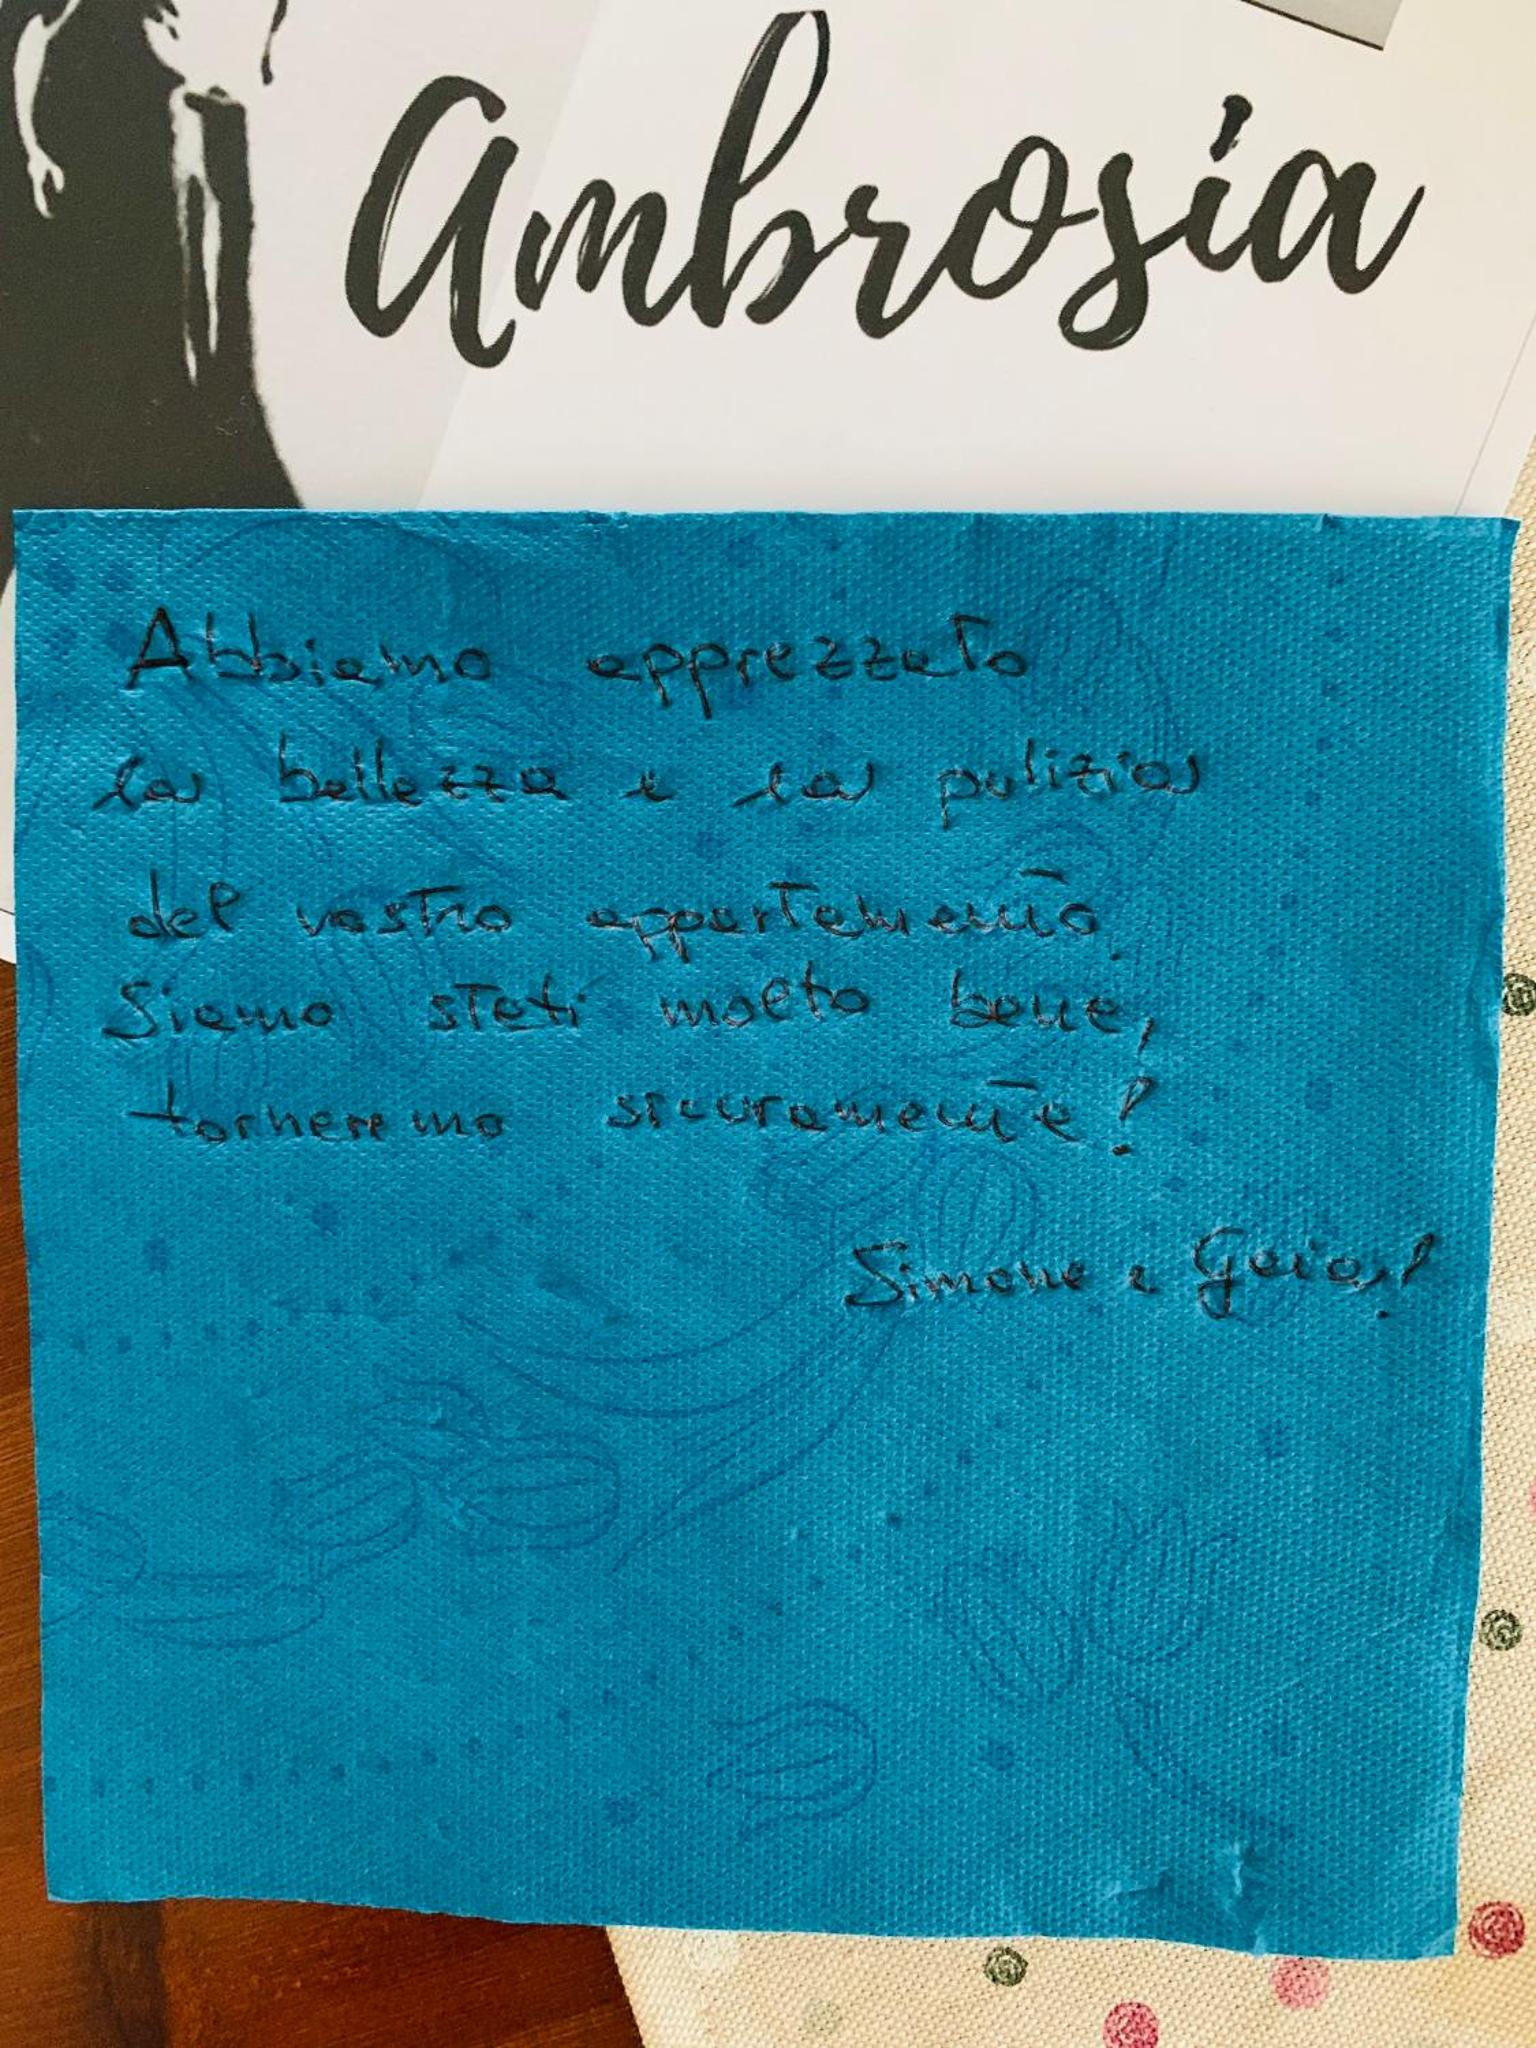 Ambrosia
Abbiamo apprezzato
la bellezza e la pulizia
del vostro appartamento.
Siamo stati molto bene,
torneremo sicuramente!
Simone e Gaia!